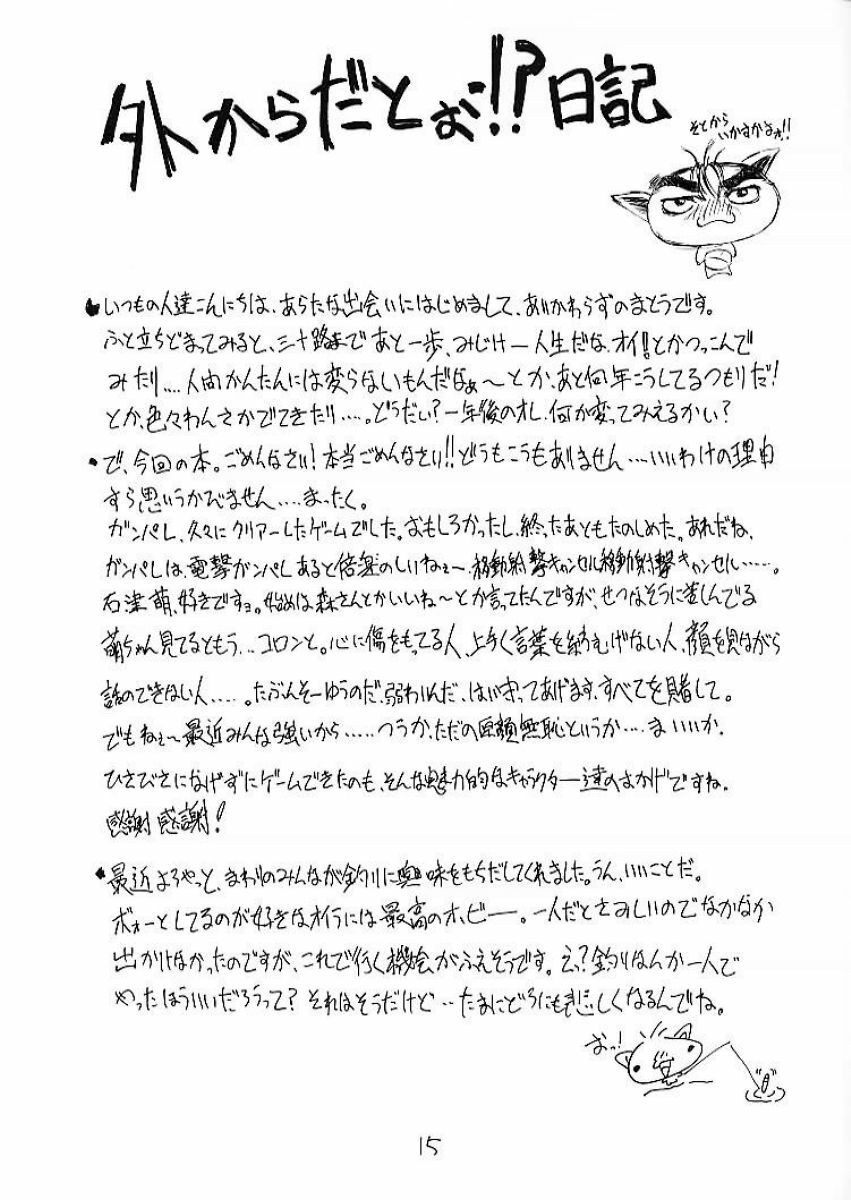 外からだとぉ!!?日記
そとから
いかすかよォ!!
・いつもの人達こんにちは、あらたな出会いにはじめまして、あいかわらずのまとうです。
ふと立ちどまってみると、三十路まであと一歩、みじけー人生だな、オイ!!とかつっこんで
みたり....人間かんたんには変らないもんだなぁ〜とか、あと何年こうしてるつもりだ!
とか、色々わんさかでてきたり.....。どうだい?一年後のオレ、何か変ってみえるかい?
・で、今回の本。ごめんなさい!本当ごめんなさい!!どうもこうもありません....いいわけの理由
すら思いうかびません....まったく。
ガンパレ、久々にクリアーしたゲームでした。おもしろかったし、終ったあともたのしめた。あれだね、
ガンパレは、電撃ガンパレあると倍楽のしいねぇ〜、移動射撃キャンセル移動射撃キャンセル.....。
石津萌、好きですョ。始めは森さんとかいいね〜とか言ってたんですが、せつなそうに差しんでる
萌ちゃん見てるともう...コロンと。心に傷をもってる人、上手く言葉を紡むげない人、顔を見ながら
話のできない人.....。たぶんそーゆうのだ、弱わいんだ、はい守ってあげます、すべてを賭して。
でもねぇ〜最近みんな強いから.....つうか、ただの厚顔無恥というか....まいいか、
ひさびさになげずにゲームできたのも、そんな魅力的なキャラクター達のおかげですね。
感謝感謝!
・最近よろやっと、まわりのみんなが釣りに興味をもちだしてくれました。うん、いいことだ。
ボォーとしてるのが好きなオイラには最高のホビー。一人だとさみしいのでなかなか
出かけなかったのですが、これで行く機会がふえそうです。え?釣りなんか一人で
やったほういいだろうって?それはそうだけど..たまにどろにも悲しくなるんでね。
おっ!
15